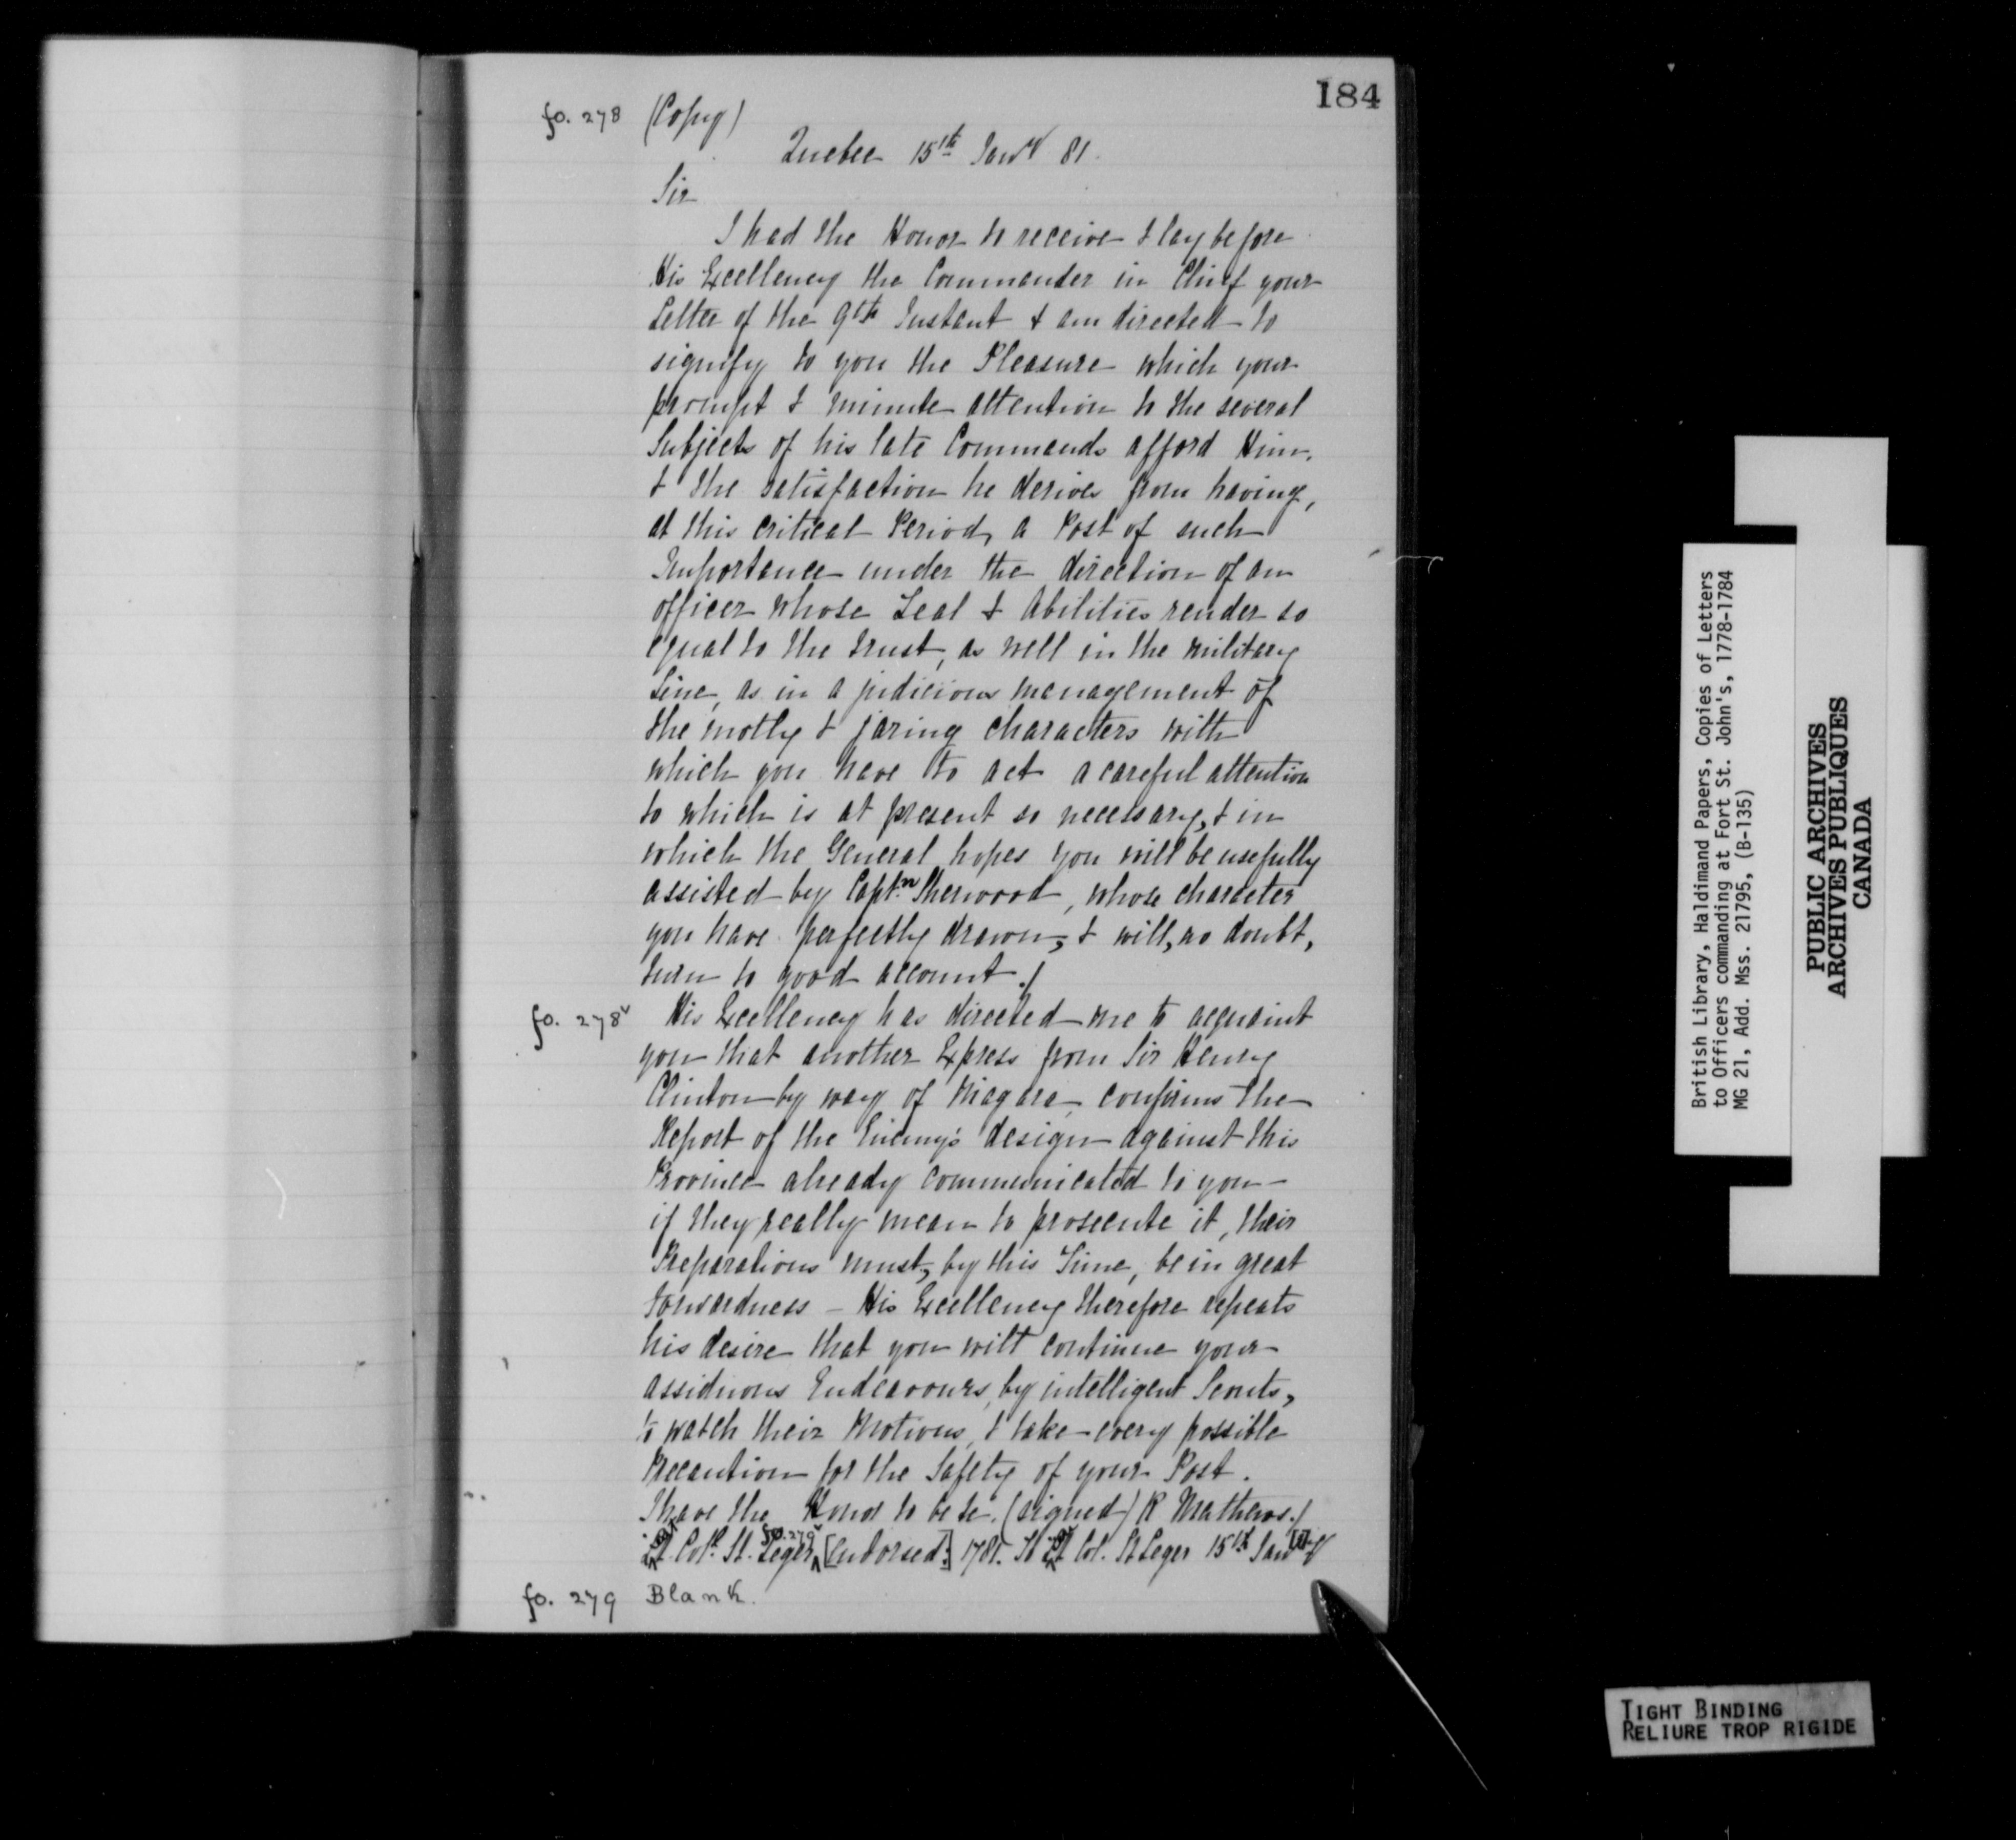 184
fo. 278 (Copy)
Quebec 15th Jany 81.
Sir
I had the Honor to receive & lay before
His Excellency the Commander in Chief your
Letter of the 9th Instant & am directed to
signify to you the Pleasure which your
prompt & minute attention to the several
Subjects of his late Commands afford Him.
& the satisfaction he derives from having,
at this critical Period, a Post of such
Importance under the direction of an
officer whose Zeal & Abilities render so
equal to the trust, as well in the military
Line, as in a judicious management of
the motly & jaring characters with
which you have to act a careful attention
to which is at present so necessary, & in
which the General hopes you will be usefully
assisted by Captn Sherwood, whose character
you have perfectly drawn, & will, no doubt,
turn to good account./
fo. 278v His Excellency has directed me to acquaint
you that another Express from Sir Henry
Clinton by way of Niagara, confirms the
Report of the Enemy's design against this
Province already communicated to you -
if they really mean to prosecute it, their
Preparations must, by this Time, be in great
forwardness - His Excellency therefore repeats
his desire that you will continue your
assiduous Endeavours, by intelligent Scouts,
to watch their Motions, & take every possible
Precaution for the Safety of your Post.
I have the Honor to be &c. (signed) R Mathews./
Col. St. Leger fo. 279v [Endorsed:] 1781. To Col. St Leger 15th Jany
fo. 279 Blank.
British Library, Haldimand Papers, Copies of Letters
to Officers commanding at Fort St. John's, 1778-1784
MG 21, Add. Mss. 21795, (B-135)
PUBLIC ARCHIVES
ARCHIVES PUBLIQUES
CANADA
TIGHT BINDING
RELIURE TROP RIGIDE